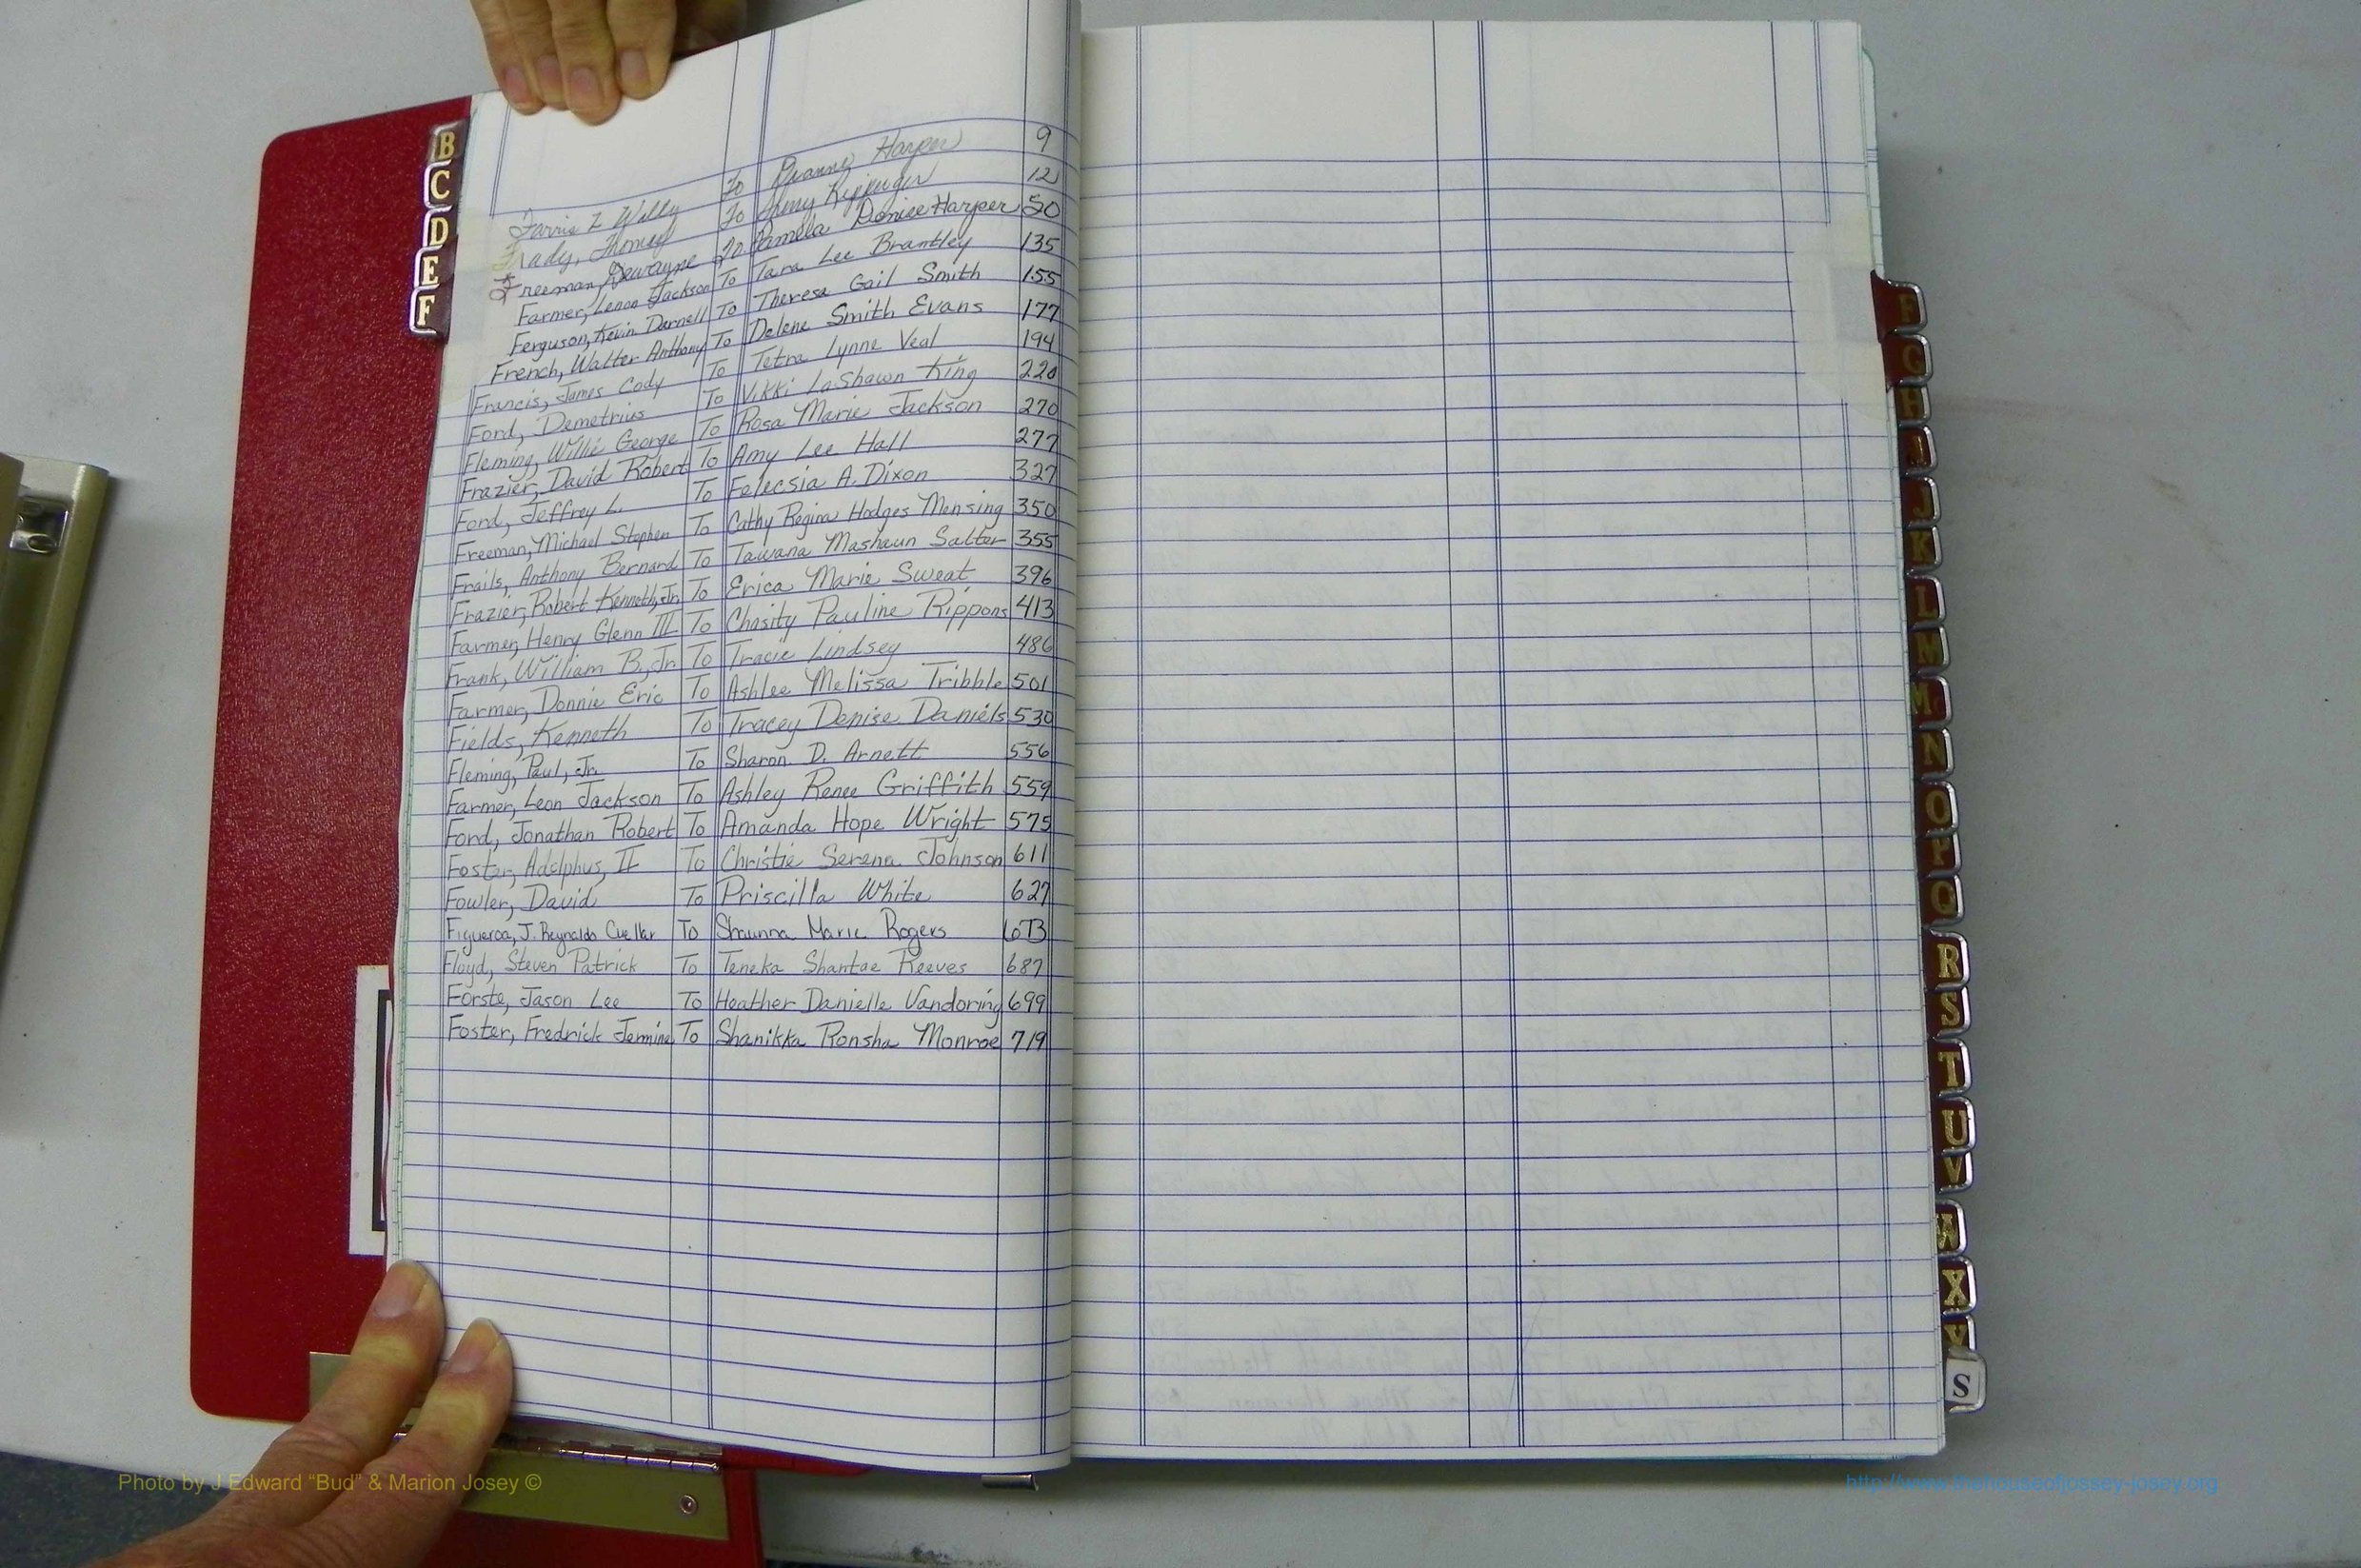 B
C
D
E
F
Farris L Willy To Deanne Harper 9
Frady, Thomas To Amy 12
Freeman, Dewayne To Pamela Denise Harper 50
Farmer, Lenon Jackson To Tara Lee Brantley 135
Ferguson, Kevin Darnell To Theresa Gail Smith 155
French, Walter Anthony To Delene Smith Evans 177
Francis, James Cody To Tetra Lynne Veal 194
Ford, Demetrius To Vikki LaShawn King 220
Fleming, Willie George To Rosa Marie Jackson 270
Frazier, David Robert To Amy Lee Hall 277
Ford, Jeffrey L. To Felecsia A. Dixon 327
Freeman, Michael Stephen To Cathy Regina Hodges Mensing 350
Frails, Anthony Bernard To Tawana Mashaun Salter 355
Frazier, Robert Kenneth, Jr. To Erica Marie Sweat 396
Farmer, Henry Glenn III To Chasity Pauline Rippons 413
Frank, William B., Jr. To Tracie Lindsey 486
Farmer, Donnie Eric To Ashlee Melissa Tribble 501
Fields, Kenneth To Tracey Denise Daniels 530
Fleming, Paul, Jr. To Sharon D. Arnett 556
Farmer, Leon Jackson To Ashley Renee Griffith 559
Ford, Jonathan Robert To Amanda Hope Wright 575
Foster, Adolphus, II To Christie Serena Johnson 611
Fowler, David To Priscilla White 627
Figueroa, J. Reynaldo Cuellar To Shaunna Marie Rogers 673
Floyd, Steven Patrick To Teneka Shantae Reeves 687
Forste, Jason Lee To Heather Danielle Vandoring 699
Foster, Fredrick Jermine To Shanikka Ronsha Monroe 719
F
G
H
I
J
K
L
M
M
N
O
P
Q
R
S
T
U
V
W
X
Y
S
Photo by J Edward “Bud” & Marion Josey ©
http://www.thehouseofjossey-josey.org